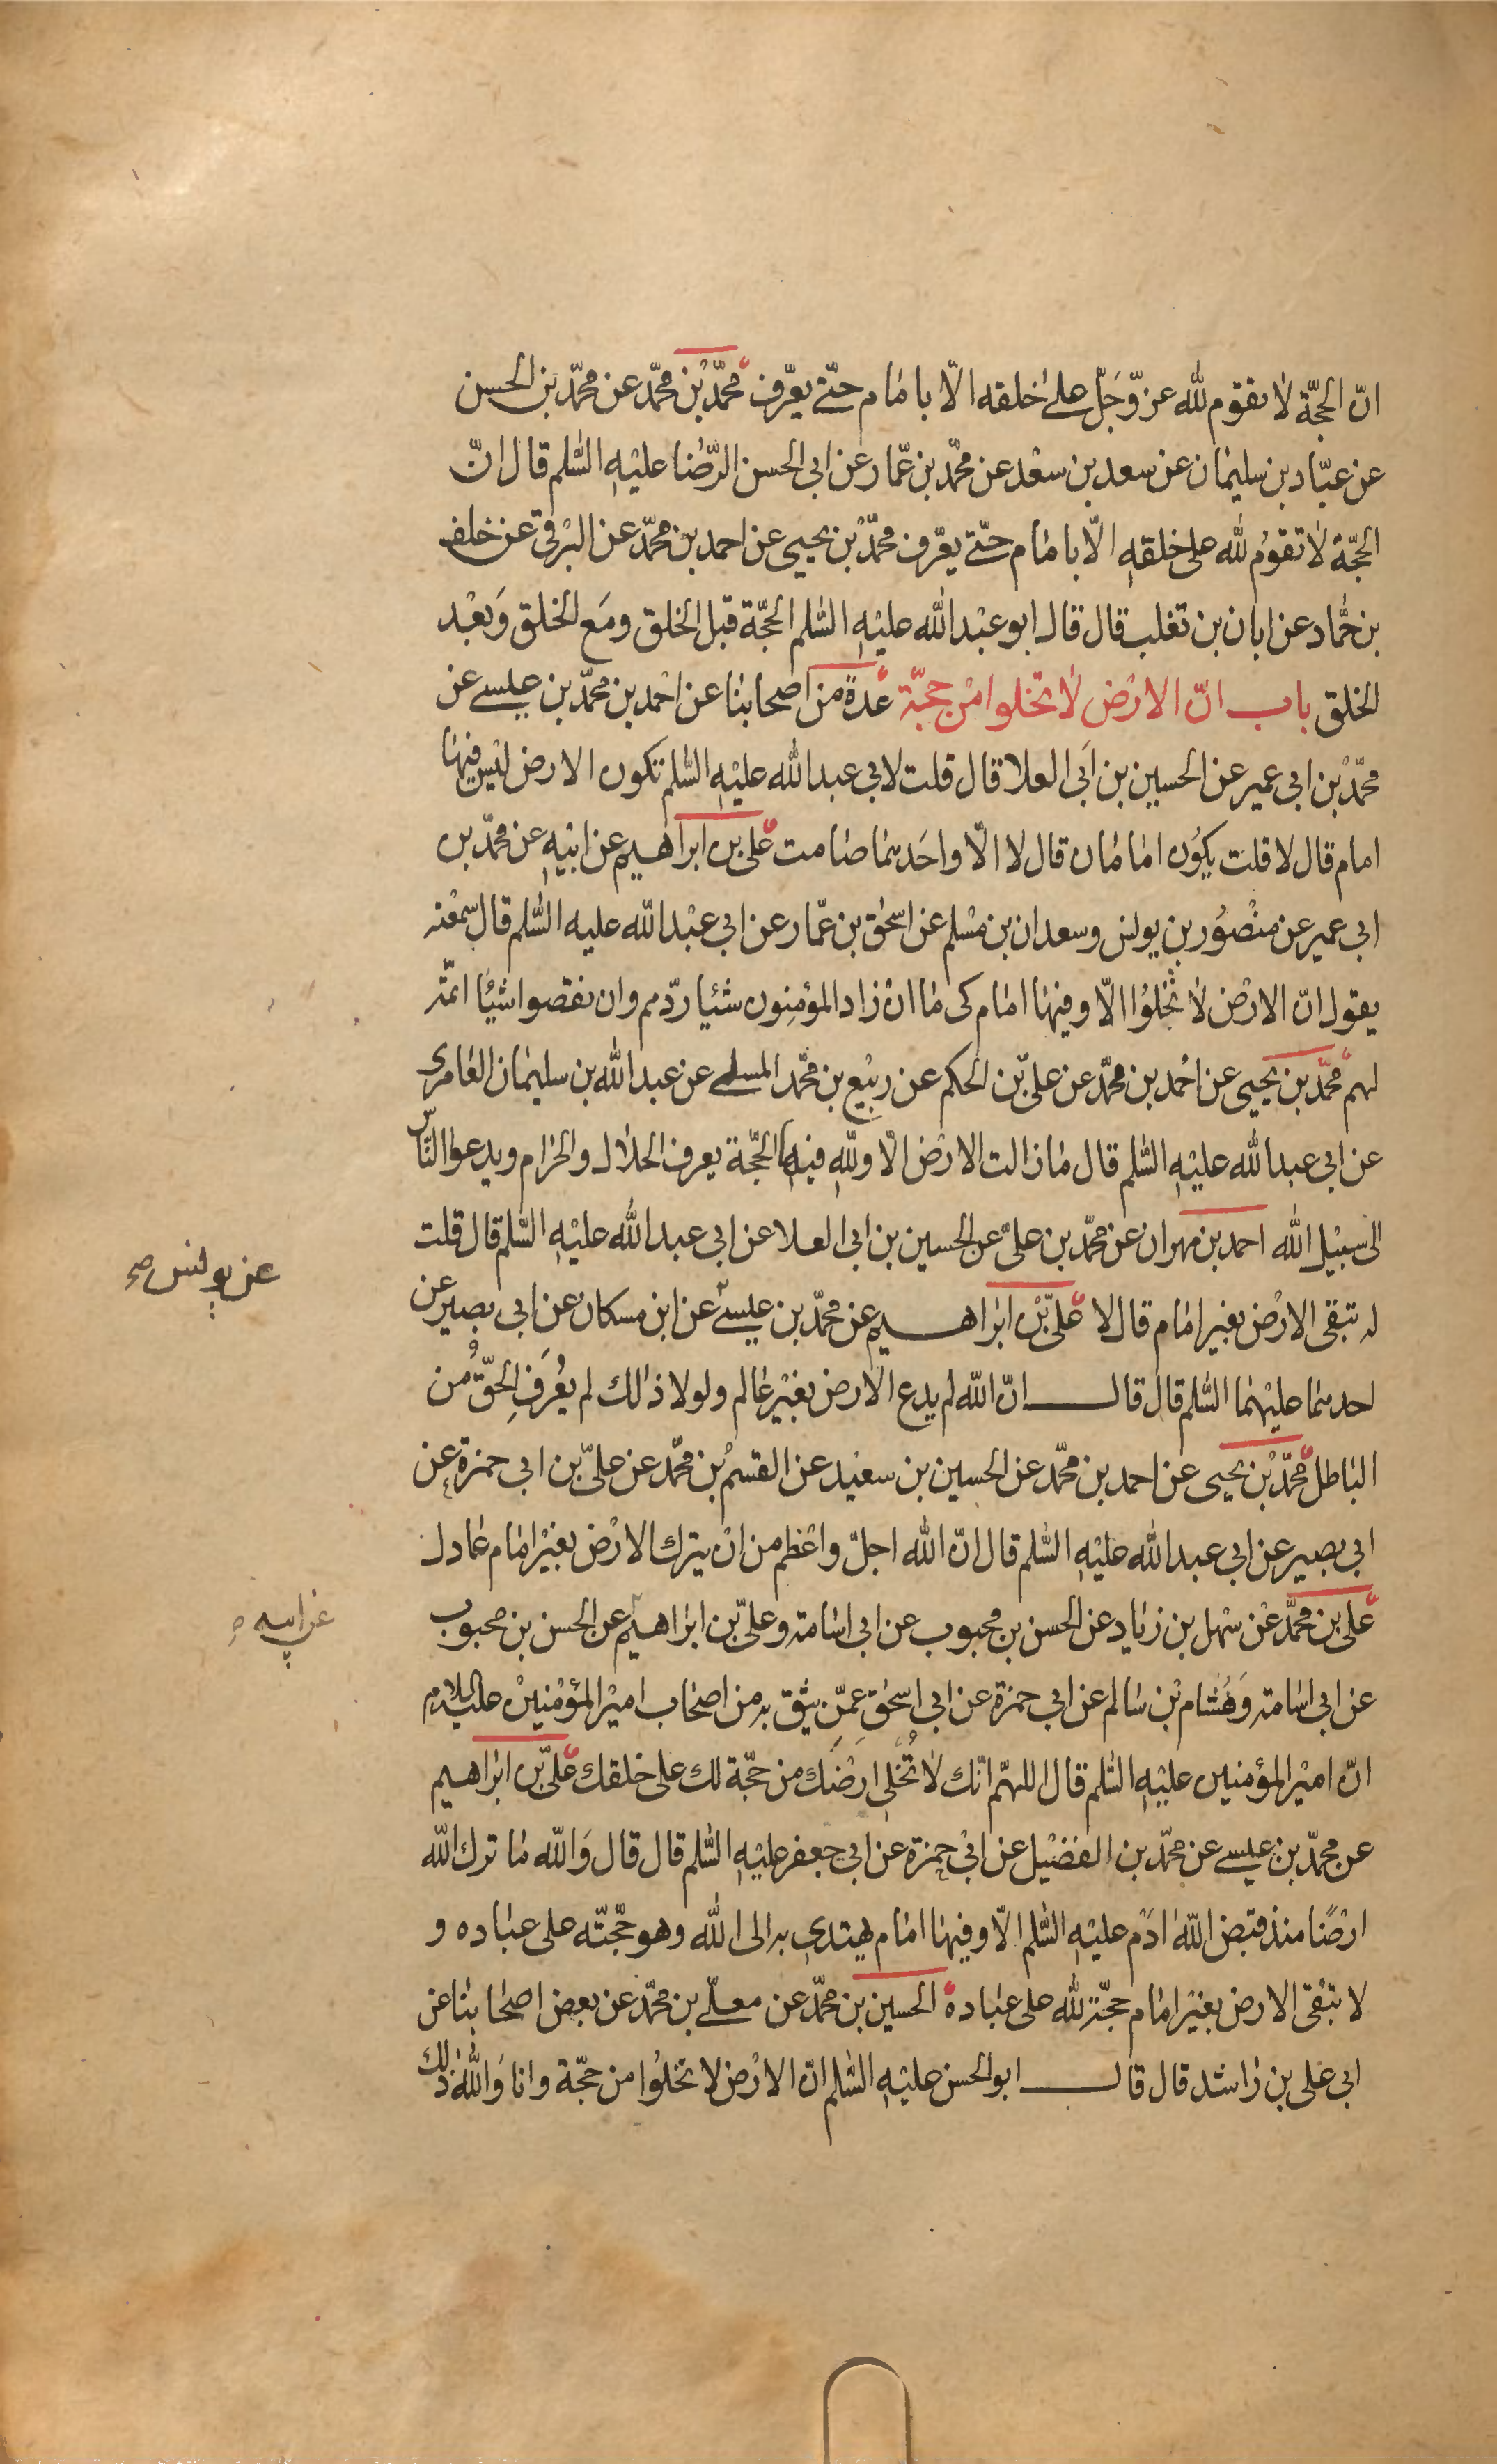 انّ الحجّة لا يقوم لله عزّ وَجَلّ على خلقه الّا بامام حتّى يعّرف محمّد بْن محمّد عن محمّد بن الحسن
عن عبّاد بن سليمان عن سعد بن سعْد عن محمّد بن عمّار عن ابى الحسن الرّضا عليْهِ السّلم قال انّ
الحجّة لا تقومُ لله على خلقهِ الّا بامام حتّى يعّرف محمّد بْن يحيى عن احمد بن محمّد عن البْرقى عن خلف
بن حمّاد عن ابان بن تغلب قال قال ابو عبْد الله عليْهِ السّلم الحجّة قبل الخلق ومَع الخلق وَبعْد
الخلق باب انّ الارْض لا تخلوا منْ حجّة عدة من اصحابنا عن احْمد بن محمّد بن عيسى عن
محمّد بْن ابى عمير عن الحسين بن اَبى العلا قال قلت لابى عبد الله عليْهِ السّلم تكون الارض ليْس فيها
امام قال لا قلت يكوُن امامان قال لا الّا واحَدهما صامت على بن ابراهيم عن ابيْهِ عن محمّد بن
ابى عمير عن منْصوُر بن يونس وسعدان بن مسْلم عن اسحٰق بن عمّار عن ابى عبْد الله عليه السّلم قال سمعْته
يقول انّ الارْض لا تخْلوُا الّا وفيها امام كى ما انْ زاد المؤمِنون شئيا ردّهم وان نقصوا شيْئا اتمّه
لهم محمّد بن يحيى عن احْمد بن محمّد عن علىّ بن الحكم عن ربيْع بن محمّد المسلى عن عبد الله بن سليمان العامرى
عن ابى عبد الله عليْهِ السّلم قال ما زالت الارْض الّا وللهِ فيها الحجّة يعرف الحلال والحرام ويدعوا النّاس
الى سبيْل الله احمد بن مهران عن محمّد بن علىّ عن الحسين بن ابى العلا عن ابى عبد الله عليْهِ السّلم قال قلت
له تبقى الارْض بغير امام قال لا علىّ بْن ابراهيم عن محمّد بن عيسى عن ابن مسكان عن ابى بصير عن
احدهما عليْهما السّلم قال قال انّ الله لم يدع الارض بغيْر عالم ولولا ذالك لم يعُرَفِ الحقّ مُن
الباطل محمّد بْن يحيى عن احمد بن محمّد عن الحسين بن سعيْد عن القسم بْن محمّد عن علىّ بن ابى حمزة عن
ابى بصير عن ابى عبد الله عليْهِ السّلم قال انّ الله اجلّ واعْظم من انْ يترك الارْض بغيْر امام عادل
على بن محمّد عنْ سهْل بن زياد عن الحسن بن محبوب عن ابى اسامة وعلىّ بن ابراهيم عن الحسن بن محبوب
عن ابى اسامة وَهُشام بْن سالم عن ابى حمزة عن ابى اسحٰق عمّن يثق به من اصحاب اميْر المؤمْنيْن عليه السلام
انّ اميْر المؤمنين عليْهِ السّلم قال اللهمّ انّك لا تُخلى ارضَك من حجّة لك على خلقك علىّ بن ابراهيم
عن محمّد بن عيسى عن محمّد بن الفضيْل عن ابىْ حمزة عن ابى جعفر عليْهِ السّلم قال قال وَالله ما ترك الله
ارْضًا منذ قبض الله ادَم عليْهِ السّلم الّا وفيها امام يهتدى به الى الله وهو حجّته على عباده و
لا تبْقى الارض بغيْر امام حجّة لله على عباده الحسين بن محمّد عن معلّى بن محمّد عن بعض اصحابنا عن
ابى على بن راشد قال قال ابو الحسن عليْهِ السّلم انّ الارْض لا تخلوُا من حجّة وانا وَالله ذلك
عن يونس صح
عن ابيه